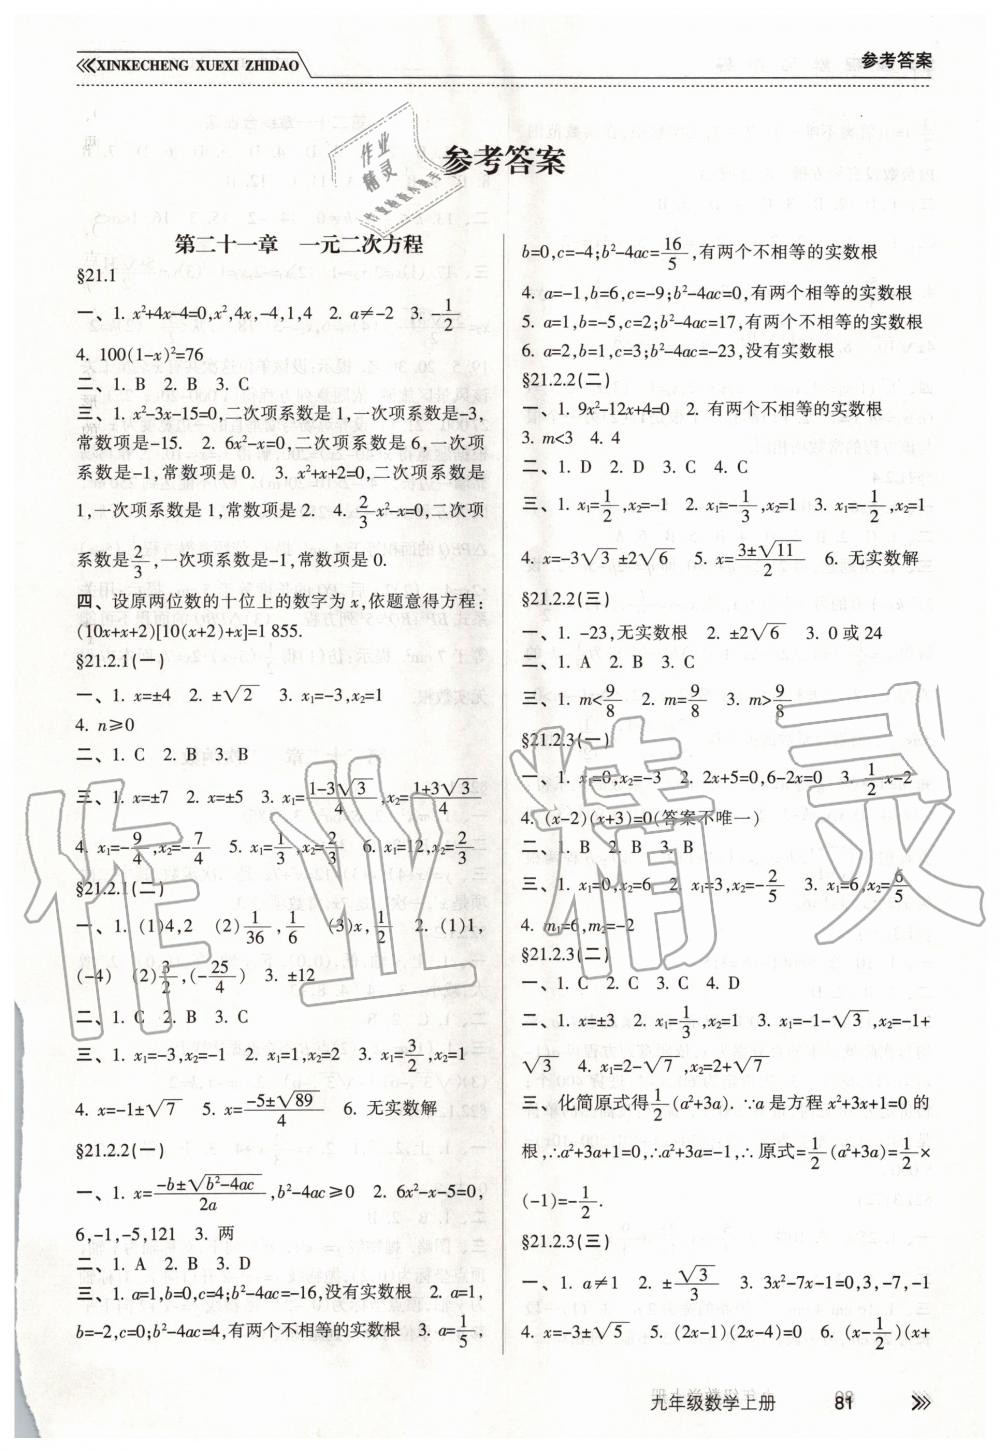 XINKECHENG XUEXI ZHIDAO
参考答案
作业
精灵
参考答案
第二十一章 一元二次方程
§21.1
一、1. x²+4x-4=0,x²,4x,-4,1,4 2. a≠-2 3. -1/2
4. 100(1-x)²=76
二、1. B 2. B 3. C
三、1. x²-3x-15=0,二次项系数是1,一次项系数是-3,
常数项是-15. 2. 6x²-x=0,二次项系数是6,一次项
系数是-1,常数项是0. 3. x²+x+2=0,二次项系数是
1,一次项系数是1,常数项是2. 4. 2/3x²-x=0,二次项
系数是2/3,一次项系数是-1,常数项是0.
四、设原两位数的十位上的数字为x,依题意得方程:
(10x+x+2)[10(x+2)+x]=1 855.
§21.2.1(一)
一、1. x=±4 2. ±√2 3. x₁=-3,x₂=1
4. n≥0
二、1. C 2. B 3. B
三、1. x=±7 2. x=±5 3. x₁=(1-3√3)/4,x₂=(1+3√3)/4
4. x₁=-9/4,x₂=-7/4 5. x₁=1/3,x₂=2/3 6. x₁=12,x₂=2/3
§21.2.1(二)
一、1. (1)4,2 (2)1/36,1/6 (3)x,1/2 2. (1)1,
(-4) (2)3/2,(-25/4) 3. ±12
二、1. C 2. B 3. C
三、1. x₁=-3,x₂=-1 2. x₁=1,x₂=2 3. x₁=3/2,x₂=1
4. x=-1±√7 5. x=(-5±√89)/4 6. 无实数解
§21.2.2(一)
一、1. x=(-b±√(b²-4ac))/2a,b²-4ac≥0 2. 6x²-x-5=0,
6,-1,-5,121 3. 两
二、1. A 2. B 3. D
三、1. a=1,b=0,c=4;b²-4ac=-16,没有实数根 2. a=1,
b=-2,c=0;b²-4ac=4,有两个不相等的实数根 3. a=1/5,
b=0,c=-4;b²-4ac=16/5,有两个不相等的实数根
4. a=-1,b=6,c=-9;b²-4ac=0,有两个相等的实数根
5. a=1,b=-5,c=2;b²-4ac=17,有两个不相等的实数根
6. a=2,b=1,c=3;b²-4ac=-23,没有实数根
§21.2.2(二)
一、1. 9x²-12x+4=0 2. 有两个不相等的实数根
3. m<3 4. 4
二、1. D 2. C 3. D 4. C
三、1. x₁=1/2,x₂=-1 2. x₁=-1/3,x₂=1 3. x₁=-1/2,x₂=1
4. x=-3√3±2√6 5. x=(3±√11)/2 6. 无实数解
§21.2.2(三)
一、1. -23,无实数根 2. ±2√6 3. 0或24
二、1. A 2. B 3. C
三、1. m<9/8 2. m=9/8 3. m>9/8
§21.2.3(一)
一、1. x₁=0,x₂=-3 2. 2x+5=0,6-2x=0 3. 1/2x-2
4. (x-2)(x+3)=0(答案不唯一)
二、1. B 2. B 3. B
三、1. x₁=0,x₂=6 2. x₁=3,x₂=-2/5 3. x₁=6,x₂=6/5
4. m₁=6,m₂=-2
§21.2.3(二)
一、1. C 2. C 3. C 4. D
二、1. x=±3 2. x₁=1/3,x₂=1 3. x₁=-1-√3,x₂=-1+
√3 4. x₁=2-√7,x₂=2+√7
三、化简原式得1/2(a²+3a). ∵a是方程x²+3x+1=0的
根,∴a²+3a+1=0,∴a²+3a=-1,∴原式=1/2(a²+3a)=1/2×
(-1)=-1/2.
§21.2.3(三)
一、1. a≠1 2. ±√3/3 3. 3x²-7x-1=0,3,-7,-1
4. x=-3±√5 5. (2x-1)(2x-4)=0 6. (x-1/2)(x+
九年级数学上册 81
作业精灵